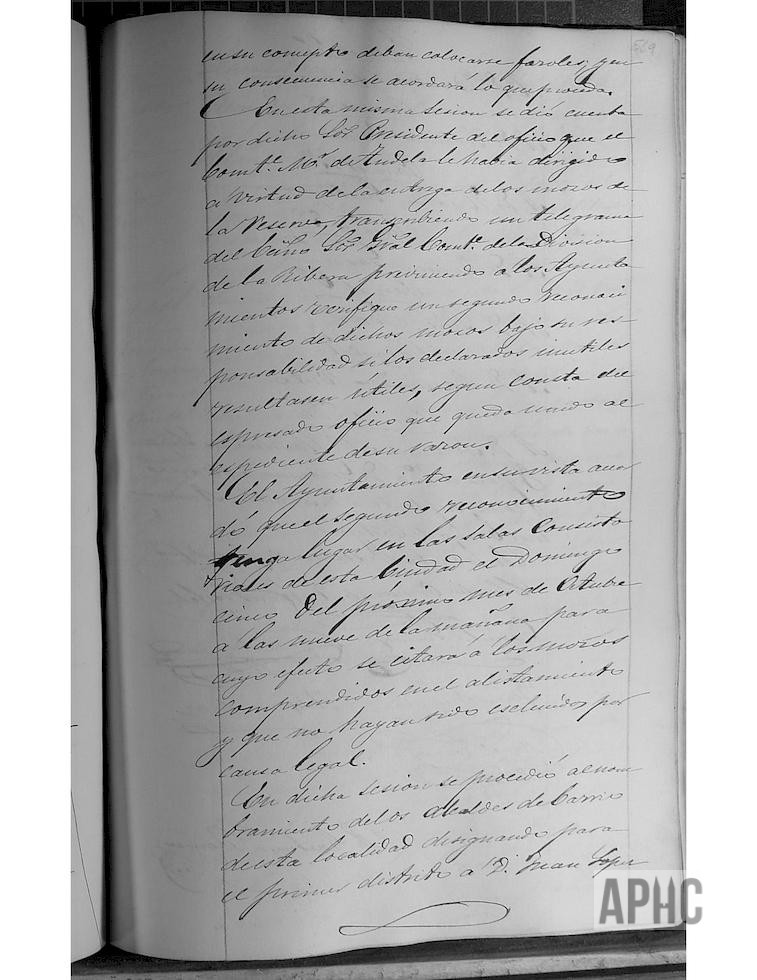 569
en su concepto deban colocarse faroles, y en
su consecuencia se acordará lo que proceda.
En esta misma Sesion se dió cuenta
por dicho Sor Presidente del oficio que el
Comte. Mr. de Tudela le habia dirigido
a virtud de la entrega de los mozos de
la Reserva, transcribiendo un telegrama
del Escmo Sor Gral Comte. de la Division
de la Ribera previniendo a los Ayunta
mientos verifique un segundo reconoci
miento de dichos mozos bajo su res-
ponsabilidad si los declarados inutiles
resultasen útiles, segun consta del
espresado oficio que queda unido al
espediente de su razon.
El Ayuntamiento en su vista acor
dó que el segundo reconocimiento
tenga lugar en las salas Consisto
riales de esta Ciudad el Domingo
cinco del próximo mes de Otubre
á las nueve de la mañana para
cuyo efecto se citará á los mozos
comprendidos en el alistamiento
y que no hayan sido escluidos por
causa legal.
En dicha sesion se procedió al nom
bramiento de los alcaldes de Barrio
de esta localidad designando para
el primer distrito a D. Juan Lopez
APHC